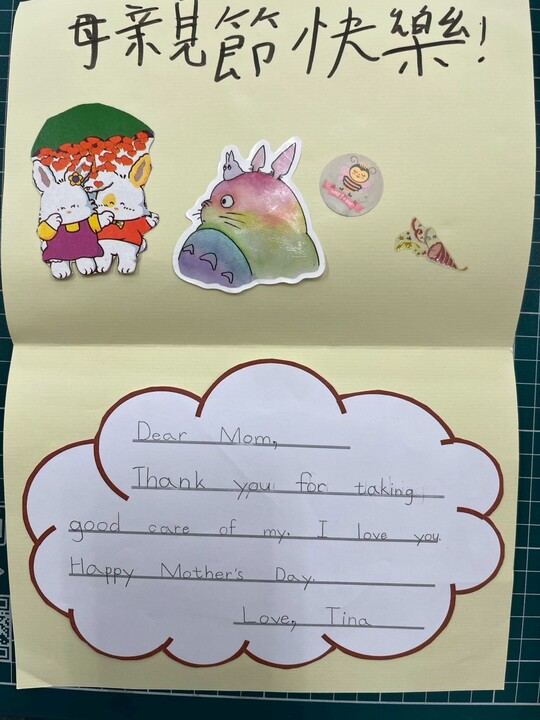 母親節快樂!
Dear Mom,
Thank you for taking
good care of my. I love you.
Happy Mother's Day.
Love, Tina